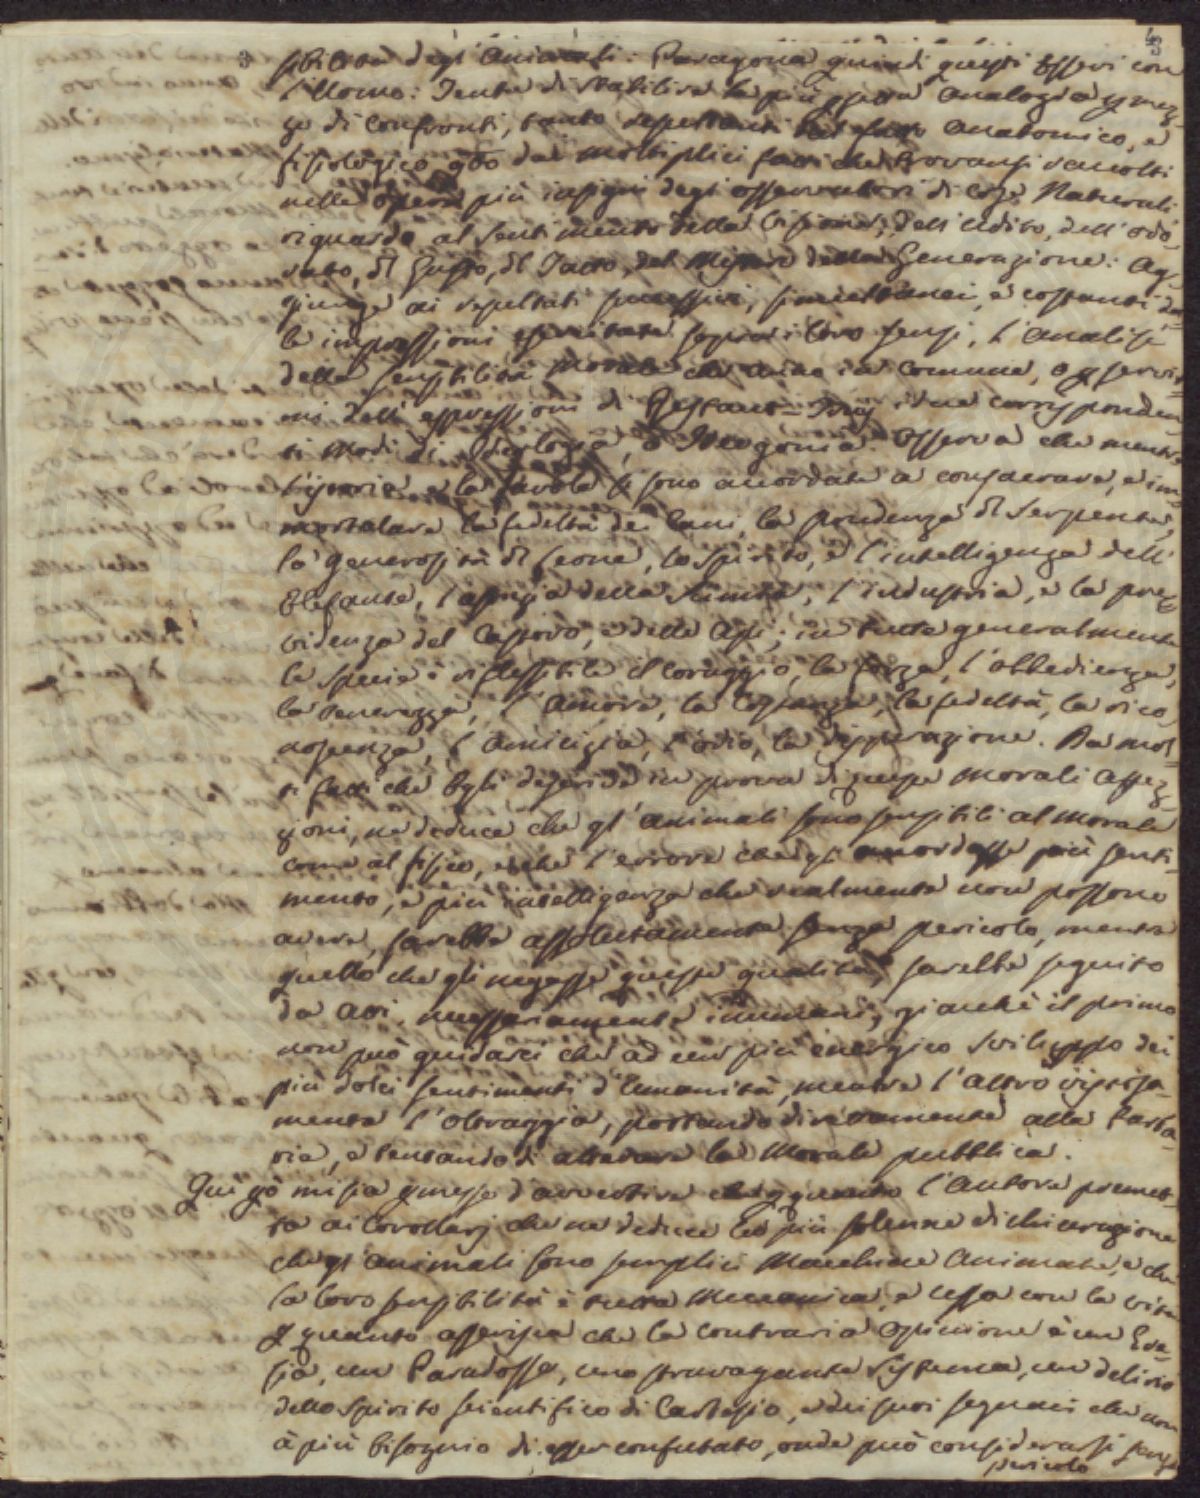 sibilità degl'Animali: Paragona quindi questi Esseri con
l'Uomo: Tenta di stabilire la più esatta analogia p mez-
zo di confronti, tanto risultanti dal fatto anatomico, e
fisiologico, qto dai moltiplici fatti che trovansi raccolti
nelle opere più insigni degl'osservatori di cose Naturali
riguardo al sentimento della Visione, dell'Udito, dell'odo-
rato, di Gusto, di Tatto, del Mistero della Generazione: Ag-
giunge ai resultati successivi, simultanei, e costanti del-
le impressioni esercitate sopra i loro sensi, l'analisi
della sensibilità morale che anno in comune, o p servir-
mi dell'espressioni di i due corrisponden-
ti Modi di Ideologia, o Ideogonia. Osserva che mentre
l'istoria e la favola si sono accordate a consacrare, e im-
mortalare la fedeltà dei Cani, la prudenza di Serpente,
la generosità di Leone, lo spirito, e l'intelligenza dell'
Elefante, l'astuzia della Scimia, l'industria, e la prev-
videnza del Castoro, e delle Api; in tutte generalmente
le specie è riflessibile il coraggio, la forza, l'obbedienza,
la tenerezza, l'Amore, la Costanza, la fedeltà, la rico-
noscenza, l'amicizia, l'odio, la disperazione. Da mol-
ti fatti che Egli deferisce in prova di queste Morali affez-
zioni, ne deduce che gl'animali sono sensibili al morale
come al fisico, e che l'errore che gl'accordasse più senti-
mento, e più intelligenza che realmente non possono
avere, sarebbe assolutamente senza pericolo, mentre
quello che gli negasse queste qualità, sarebbe seguito
da atti necessariamente inumani, giacchè il primo
non può guidarci che ad un più energico sviluppo dei
più dolci sentimenti d'Umanità, mentre l'altro
mente l'oltraggia, portando direttamente alla barba-
rie, e tentando di alterare la Morale pubblica.
Quì pò mi sia pmesso d'avvertire che pquanto l'Autore premet-
ta ai Corollarj che ne deduce la più solenne dichiarazione
che gl'animali sono semplici Macchine Animate, e che
la loro sensibilità è tutta Meccanica, e cessa con la vita
p quanto asserisca che la contraria opinione è un Ere-
sia, un Paradosso, uno stravagante Sistema, un delirio
dello Spirito scientifico di Cartesio, e dei suoi seguaci che non
à più bisogno di esser confutato, onde può considerarsi senza
pericolo